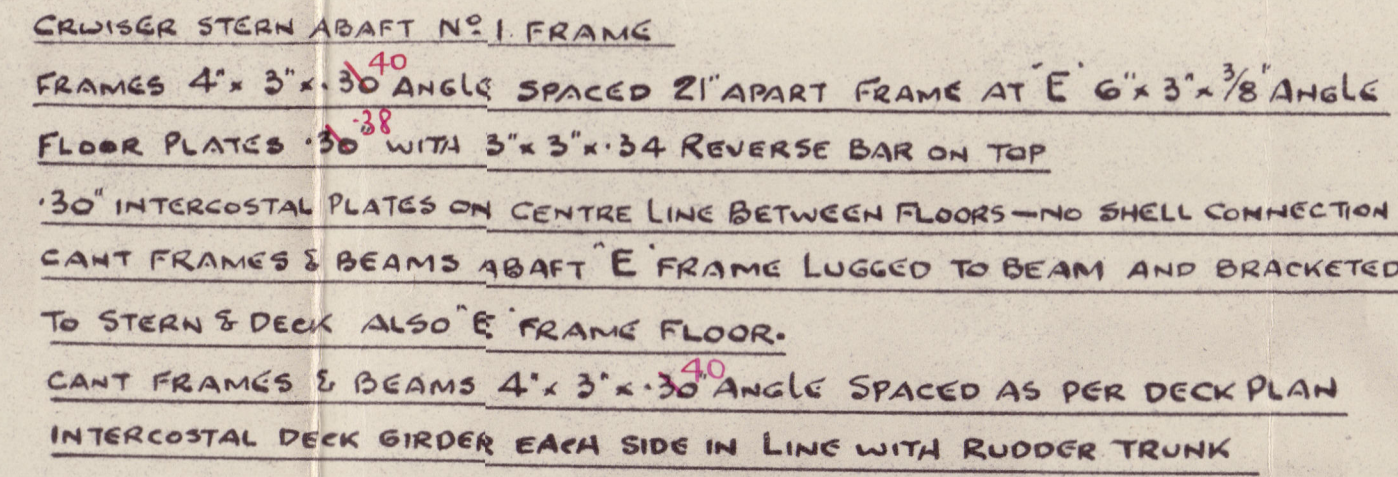 CRUISER STERN ABAFT Nº 1. FRAME
FRAMES 4" x 3" x .30 40 ANGLE SPACED 21" APART FRAME AT "E" 6" x 3" x 3/8" ANGLE
FLOOR PLATES .30 .38 WITH 3" x 3" x .34 REVERSE BAR ON TOP
.30" INTERCOSTAL PLATES ON CENTRE LINE BETWEEN FLOORS — NO SHELL CONNECTION
CANT FRAMES & BEAMS ABAFT "E" FRAME LUGGED TO BEAM AND BRACKETED
TO STERN & DECK ALSO "E" FRAME FLOOR.
CANT FRAMES & BEAMS 4" x 3" x .30" 40 ANGLE SPACED AS PER DECK PLAN
INTERCOSTAL DECK GIRDER EACH SIDE IN LINE WITH RUDDER TRUNK